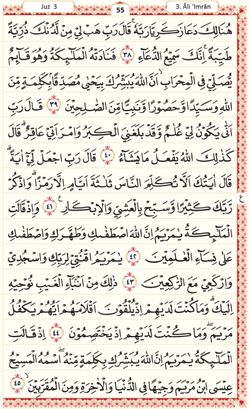 Juz 3
55
3. Âli 'Imrân
هُنَالِكَ دَعَا زَكَرِيَّا رَبَّهُ قَالَ رَبِّ هَبْ لِي مِنْ لَدُنْكَ ذُرِّيَّةً
طَيِّبَةً إِنَّكَ سَمِيعُ الدُّعَاءِ ﴿٣٨﴾ فَنَادَتْهُ الْمَلَٰئِكَةُ وَهُوَ قَائِمٌ
يُصَلِّي فِي الْمِحْرَابِ أَنَّ اللَّهَ يُبَشِّرُكَ بِيَحْيَىٰ مُصَدِّقًا بِكَلِمَةٍ مِنَ
اللَّهِ وَسَيِّدًا وَحَصُورًا وَنَبِيًّا مِنَ الصَّالِحِينَ ﴿٣٩﴾ قَالَ رَبِّ
أَنَّىٰ يَكُونُ لِي غُلَٰمٌ وَقَدْ بَلَغَنِيَ الْكِبَرُ وَامْرَأَتِي عَاقِرٌ قَالَ
كَذَٰلِكَ اللَّهُ يَفْعَلُ مَا يَشَاءُ ﴿٤٠﴾ قَالَ رَبِّ اجْعَلْ لِي آيَةً
قَالَ آيَتُكَ أَلَّا تُكَلِّمَ النَّاسَ ثَلَٰثَةَ أَيَّامٍ إِلَّا رَمْزًا وَاذْكُرْ
رَبَّكَ كَثِيرًا وَسَبِّحْ بِالْعَشِيِّ وَالْإِبْكَارِ ﴿٤١﴾ وَإِذْ قَالَتِ
الْمَلَٰئِكَةُ يَٰمَرْيَمُ إِنَّ اللَّهَ اصْطَفَىٰكِ وَطَهَّرَكِ وَاصْطَفَىٰكِ
عَلَىٰ نِسَاءِ الْعَٰلَمِينَ ﴿٤٢﴾ يَٰمَرْيَمُ اقْنُتِي لِرَبِّكِ وَاسْجُدِي
وَارْكَعِي مَعَ الرَّٰكِعِينَ ﴿٤٣﴾ ذَٰلِكَ مِنْ أَنْبَاءِ الْغَيْبِ نُوحِيهِ
إِلَيْكَ وَمَا كُنْتَ لَدَيْهِمْ إِذْ يُلْقُونَ أَقْلَٰمَهُمْ أَيُّهُمْ يَكْفُلُ
مَرْيَمَ وَمَا كُنْتَ لَدَيْهِمْ إِذْ يَخْتَصِمُونَ ﴿٤٤﴾ إِذْ قَالَتِ
الْمَلَٰئِكَةُ يَٰمَرْيَمُ إِنَّ اللَّهَ يُبَشِّرُكِ بِكَلِمَةٍ مِنْهُ اسْمُهُ الْمَسِيحُ
عِيسَى ابْنُ مَرْيَمَ وَجِيهًا فِي الدُّنْيَا وَالْآخِرَةِ وَمِنَ الْمُقَرَّبِينَ ﴿٤٥﴾